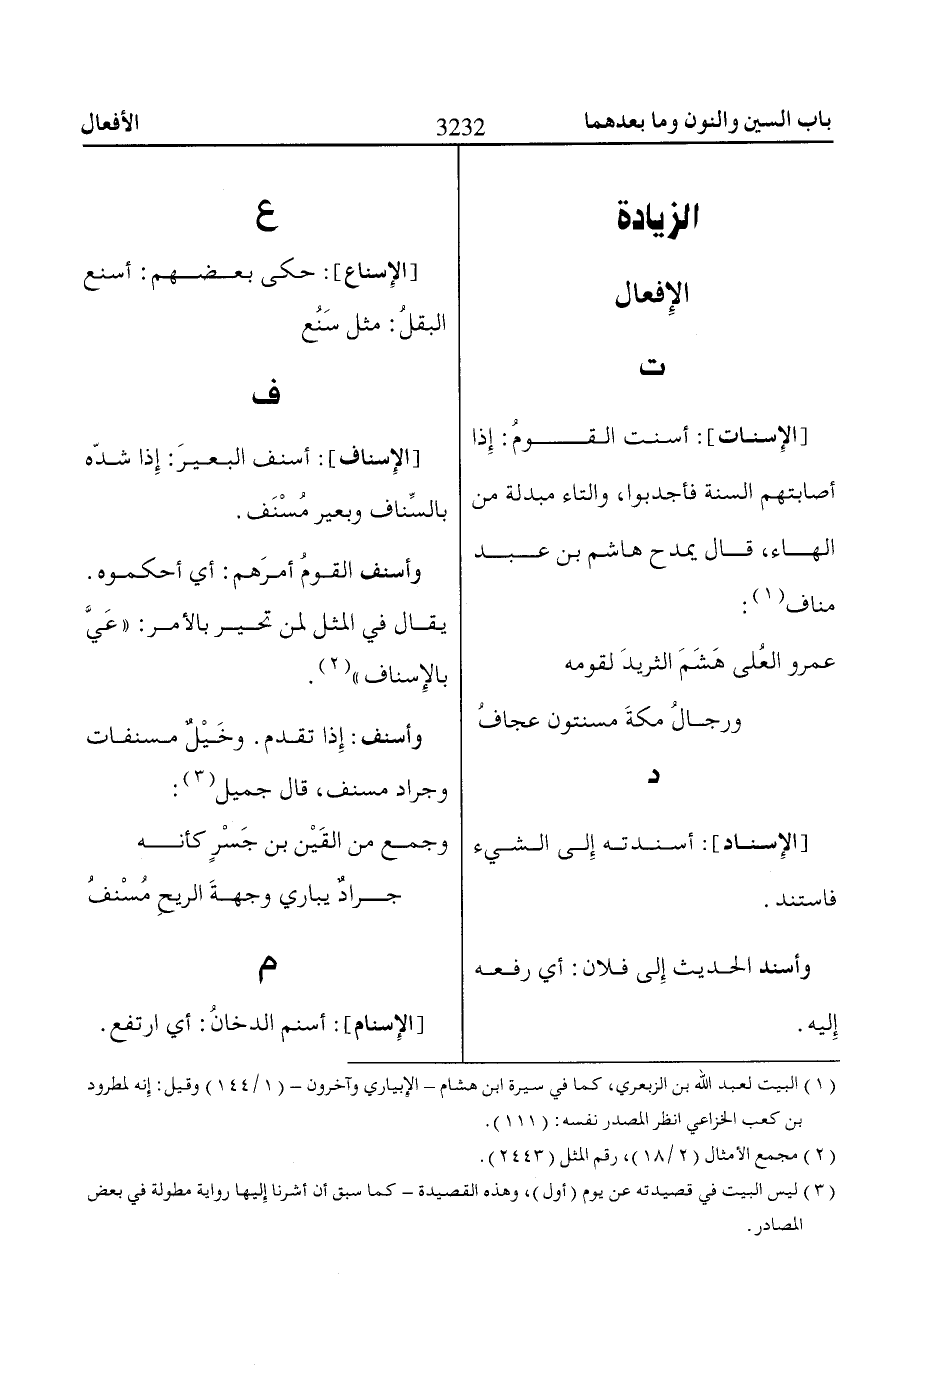 باب السين والنون وما بعدهما
3232
الأفعال
الزيادة
الإفعال
ت
[الإسنات]: أسنت القـــــومُ: إذا
أصابتهم السنة فأجدبوا، والتاء مبدلة من
الهـــاء، قــال يمدح هاشم بن عـــبـــد
مناف(١):
عمرو العُلى هَشَمَ الثريدَ لقومه
ورجـالُ مكةَ مسنتون عجافُ
د
[الإســناد]: أسـنـدتـه إلى الـشـيء
فاستند .
وأسند الحديث إلى فلان: أي رفـعـه
إليه.
ع
[الإسناع]: حكى بـعـضـهم: أسنع
البقلُ: مثل سَنُع
ف
[الإسناف]: أسنف البـعـيـرَ: إذا شدّه
بالسِّناف وبعير مُسْنَف .
وأسنف القـومُ أمـرَهم: أي أحكمـوه .
يقـال في المثل لمن تحيـر بالأمر: «عَيَّ
بالإسناف»(٢).
وأسنف: إذا تقـدم. وخَيْلٌ مـسنفـات
وجراد مسنف، قال جميل(٣):
وجمـع من القَيْن بن جَسْرٍ كأنـــه
جــرادٌ يباري وجهـةَ الريحِ مُسْنفُ
م
[الإسنام]: أسنم الدخانُ: أي ارتفع.
(١) البيت لعبد الله بن الزبعري، كما في سيرة ابن هشام – الإبياري وآخرون – (١/ ١٤٤) وقيل: إنه لمطرود
بن كعب الخزاعي انظر المصدر نفسه: (١١١).
(٢) مجمع الأمثال (٢/ ١٨)، رقم المثل (٢٤٤٣).
(٣) ليس البيت في قصيدته عن يوم (أول)، وهذه القصيدة – كما سبق أن أشرنا إليها رواية مطولة في بعض
المصادر.